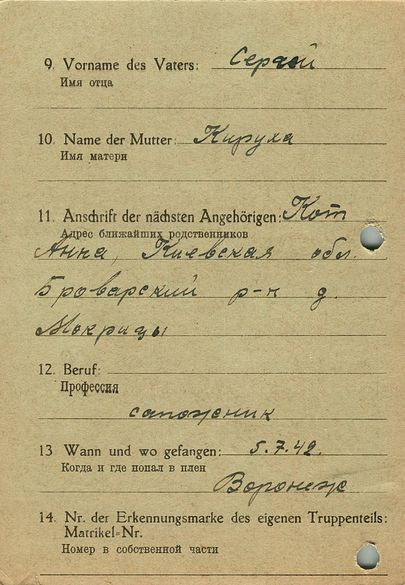 9. Vorname des Vaters: Сергей
Имя отца
10. Name der Mutter: Кируха
Имя матери
11. Anschrift der nächsten Angehörigen: Кот
Адрес ближайших родственников
Анна, Киевская обл.
Броварский р-н д.
Мокрицы
12. Beruf:
Профессия
сапожник
13 Wann und wo gefangen: 5.7.42.
Когда и где попал в плен
Воронеж
14. Nr. der Erkennungsmarke des eigenen Truppenteils:
Matrikel-Nr.
Номер в собственной части